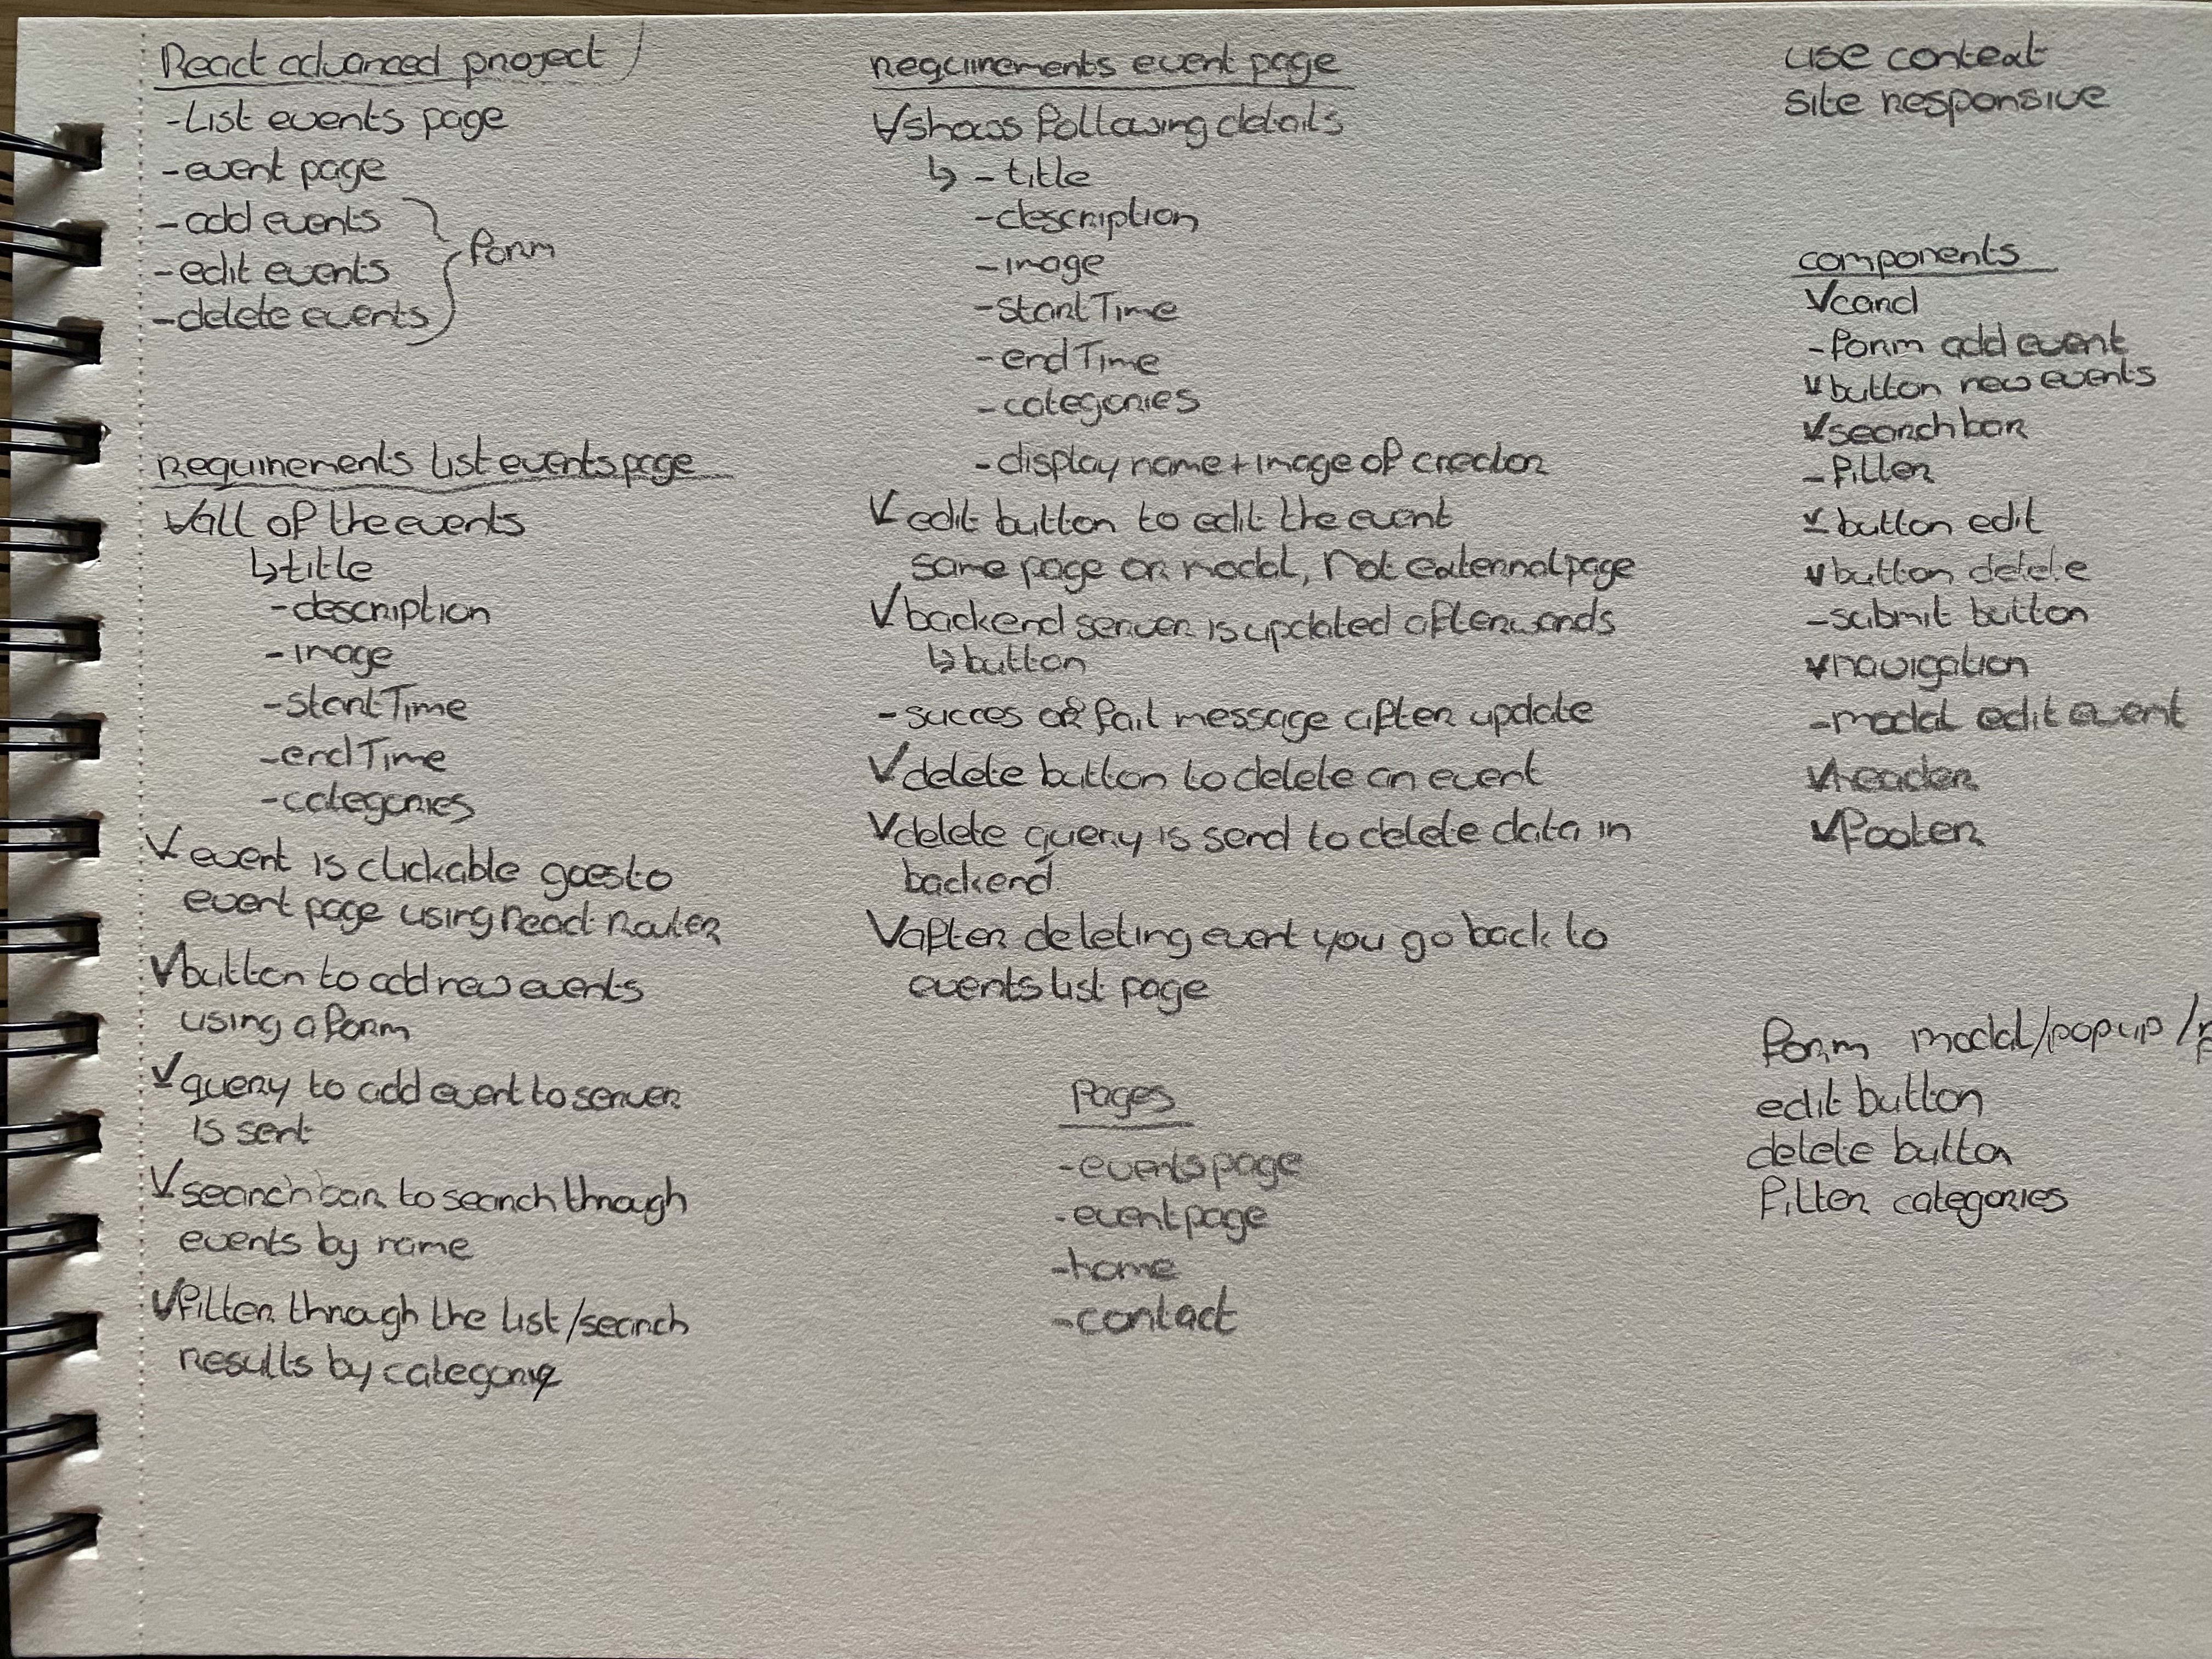 React advanced project
- List events page
- event page
- add events
- edit events
- delete events
form
requirements list events page
✓ all of the events
↳ title
- description
- image
- startTime
- endTime
- categories
✓ event is clickable goes to
event page using React Router
✓ button to add new events
using a form
✓ query to add event to server
is sent
✓ searchbar to search through
events by name
✓ filter through the list/search
results by category
requirements event page
✓ shows following details
↳ - title
- description
- image
- startTime
- endTime
- categories
- display name + image of creator
✓ edit button to edit the event
same page or modal, not external page
✓ backend server is updated afterwards
↳ button
- succes or fail message after update
✓ delete button to delete an event
✓ delete query is send to delete data in
backend.
✓ after deleting event you go back to
events list page
Pages
- events page
- event page
- home
- contact
use context
site responsive
components
✓ card
- form add event
✓ button new events
✓ search bar
- filter
✓ button edit
✓ button delete
- submit button
✓ navigation
- modal edit event
✓ header
✓ footer
form modal/popup/
edit button
delete button
filter categories